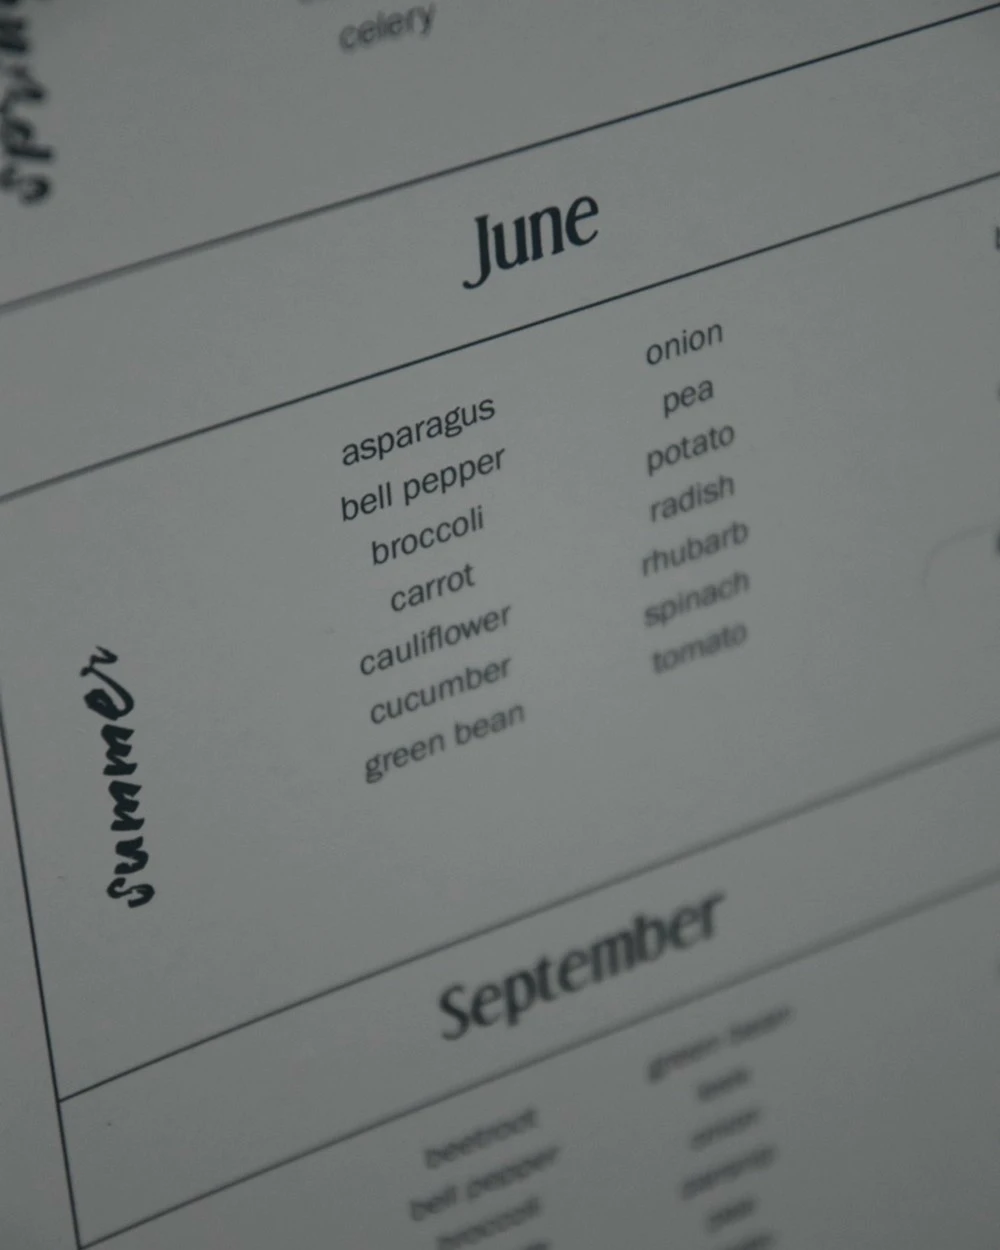 spring
celery
June
asparagus
bell pepper
broccoli
carrot
cauliflower
cucumber
green bean
onion
pea
potato
radish
rhubarb
spinach
tomato
summer
September
beetroot
bell pepper
broccoli
green bean
leek
onion
parsnip
pea